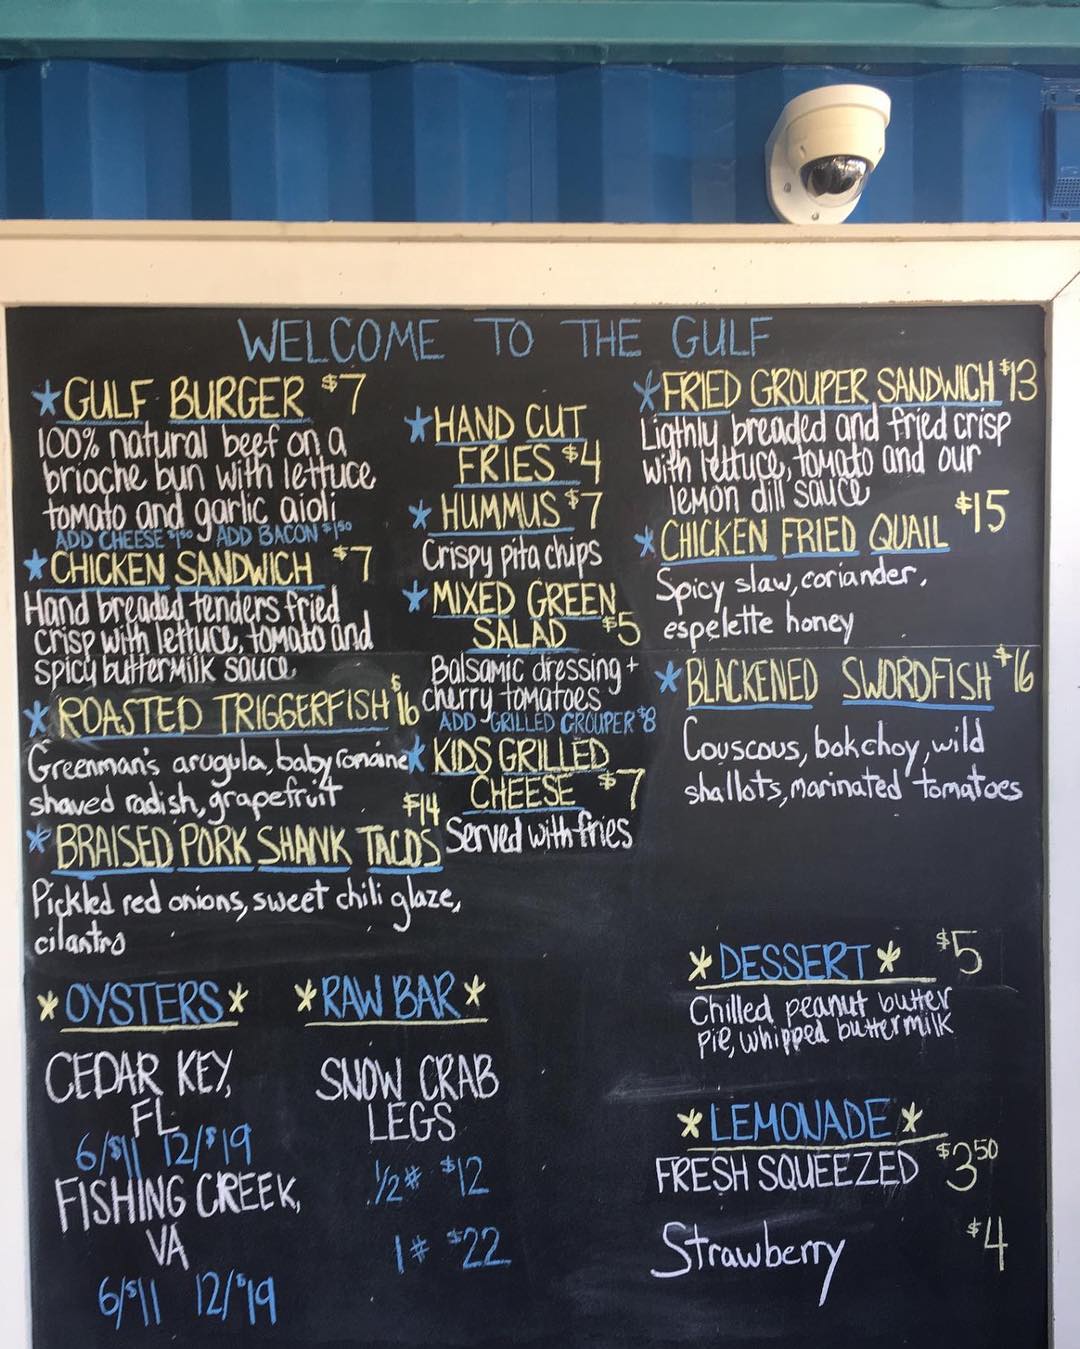 WELCOME TO THE GULF
*GULF BURGER $7
100% natural beef on a
brioche bun with lettuce
tomato and garlic aioli
ADD CHEESE $1.50 ADD BACON $1.50
*CHICKEN SANDWICH $7
Hand breaded tenders fried
crisp with lettuce, tomato and
spicy buttermilk sauce
*ROASTED TRIGGERFISH $16
Greenman's arugula, baby romaine
shaved radish, grapefruit
$14
*BRAISED PORK SHANK TACOS
Pickled red onions, sweet chili glaze,
cilantro
*HAND CUT
FRIES $4
*HUMMUS $7
Crispy pita chips
*MIXED GREEN
SALAD $5
Balsamic dressing +
cherry tomatoes
ADD GRILLED GROUPER $8
*KIDS GRILLED
CHEESE $7
Served with fries
*FRIED GROUPER SANDWICH $13
Ligthly breaded and fried crisp
with lettuce, tomato and our
lemon dill sauce
*CHICKEN FRIED QUAIL $15
Spicy slaw, coriander,
espelette honey
*BLACKENED SWORDFISH $16
Couscous, bok choy, wild
shallots, marinated tomatoes
*OYSTERS*
CEDAR KEY,
FL
6/$11 12/$19
FISHING CREEK,
VA
6/$11 12/$19
*RAW BAR*
SNOW CRAB
LEGS
1/2# $12
1# $22
*DESSERT* $5
Chilled peanut butter
pie, whipped buttermilk
*LEMONADE*
FRESH SQUEEZED $3.50
Strawberry $4